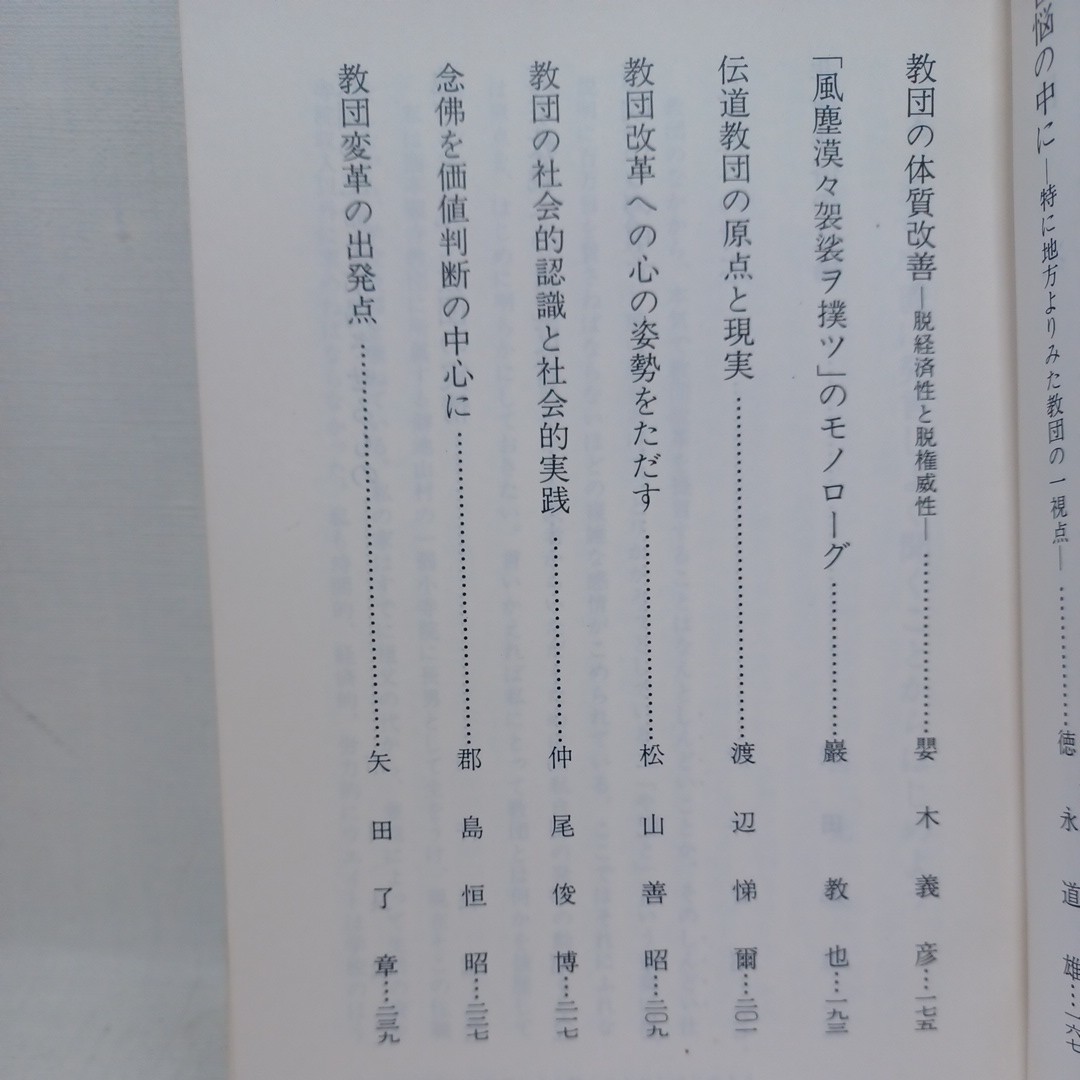 悩の中に―特に地方よりみた教団の一視点―……………徳永道雄…一六七
教団の体質改善―脱経済性と脱権威性―……………嬰木義彦…一七五
「風塵漠々袈裟ヲ撲ツ」のモノローグ……………巖教也…一九三
伝道教団の原点と現実……………渡辺悌爾…二〇一
教団改革への心の姿勢をただす……………松山善昭…二〇九
教団の社会的認識と社会的実践……………仲尾俊博…二一七
念佛を価値判断の中心に……………郡島恒昭…二二七
教団変革の出発点……………矢田了章…二三九